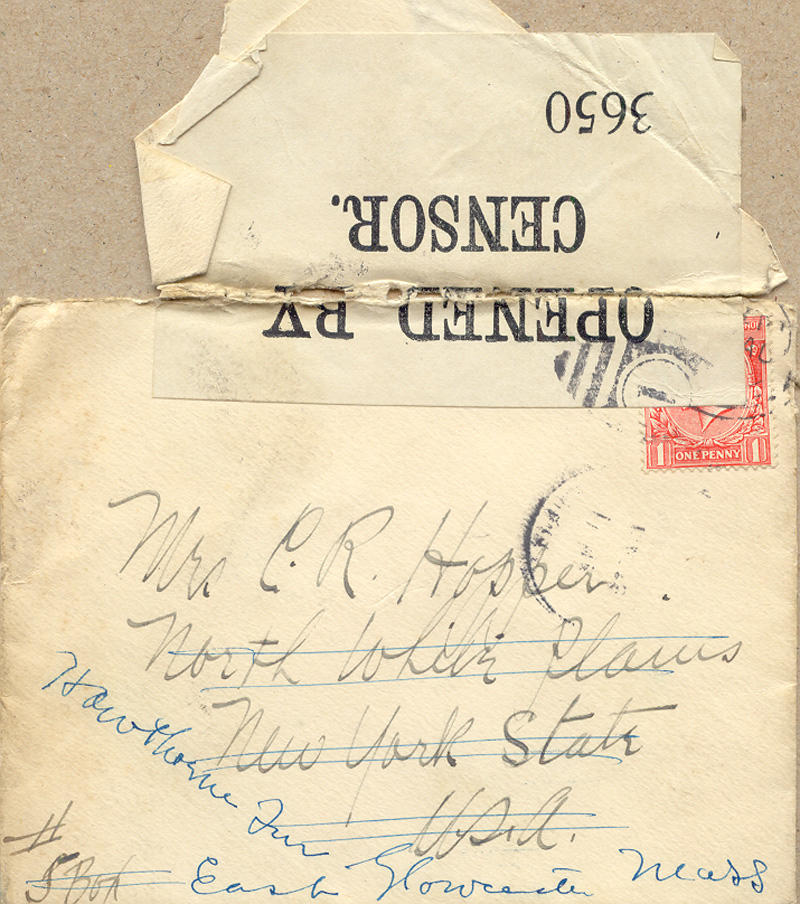 3650
CENSOR.
OPENED BY
1 ONE PENNY 1
Mrs C. R. Hopper.
North White Plains
New York State
U.S.A.
Hawthorne Inn
East Gloucester Mass
#
5 Box